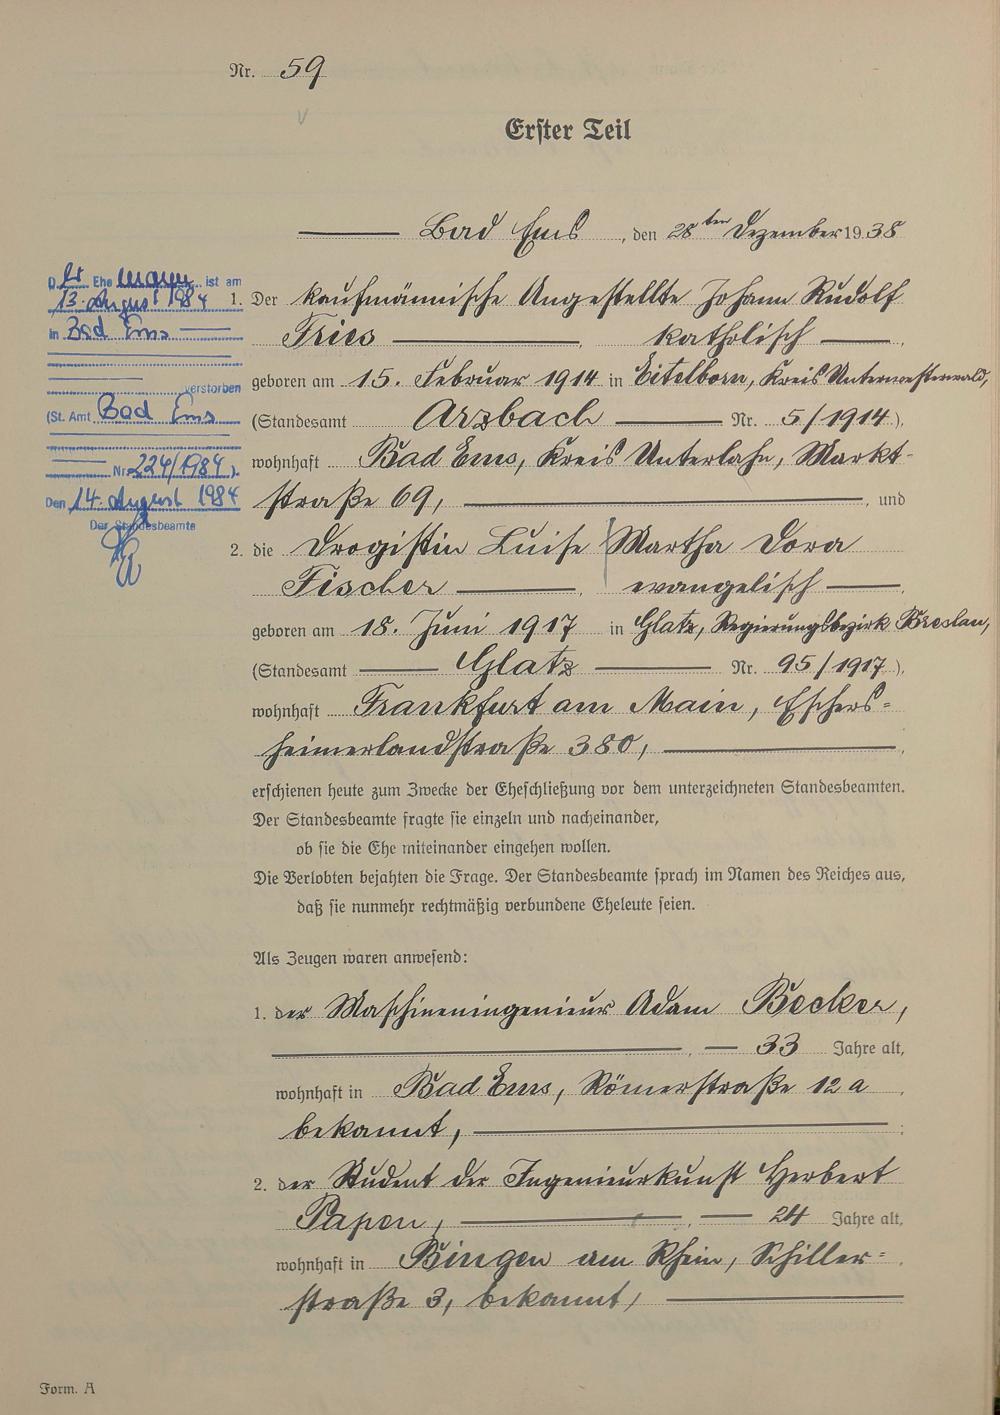 Nr. 59
Erster Teil
Bad Ems, den 28ten Dezember 1938
1. Der kaufmännische Angestellte Johann Rudolf
Fries, katholisch,
geboren am 15. Februar 1914 in Eitelborn, Kreis Unterwesterwald,
(Standesamt Arzbach Nr. 5/1914),
wohnhaft Bad Ems, Kreis Unterlahn, Markt-
straße 69, und
2. die Drogistin Luise Martha Dora
Fischer, evangelisch,
geboren am 18. Juni 1917 in Glatz, Regierungsbezirk Breslau,
(Standesamt Glatz Nr. 95/1917),
wohnhaft Frankfurt am Main, Eschers=
heimerlandstraße 380,
erschienen heute zum Zwecke der Eheschließung vor dem unterzeichneten Standesbeamten.
Der Standesbeamte fragte sie einzeln und nacheinander,
ob sie die Ehe miteinander eingehen wollen.
Die Verlobten bejahten die Frage. Der Standesbeamte sprach im Namen des Reiches aus,
daß sie nunmehr rechtmäßig verbundene Eheleute seien.
Als Zeugen waren anwesend:
1. der Maschineningenieur Adam Becker,
33 Jahre alt,
wohnhaft in Bad Ems, Römerstraße 12 a
bekannt,
2. der Student der Ingenieurkunst Herbert
Papen, 24 Jahre alt,
wohnhaft in Bingen am Rhein, Schiller=
straße 3, bekannt,
Form. A
Der Ehemann ist am
13. August 1984
in Bad Ems
verstorben
(St. Amt Bad Ems
Nr. 224/1984).
Den 14. August 1984
Der Standesbeamte